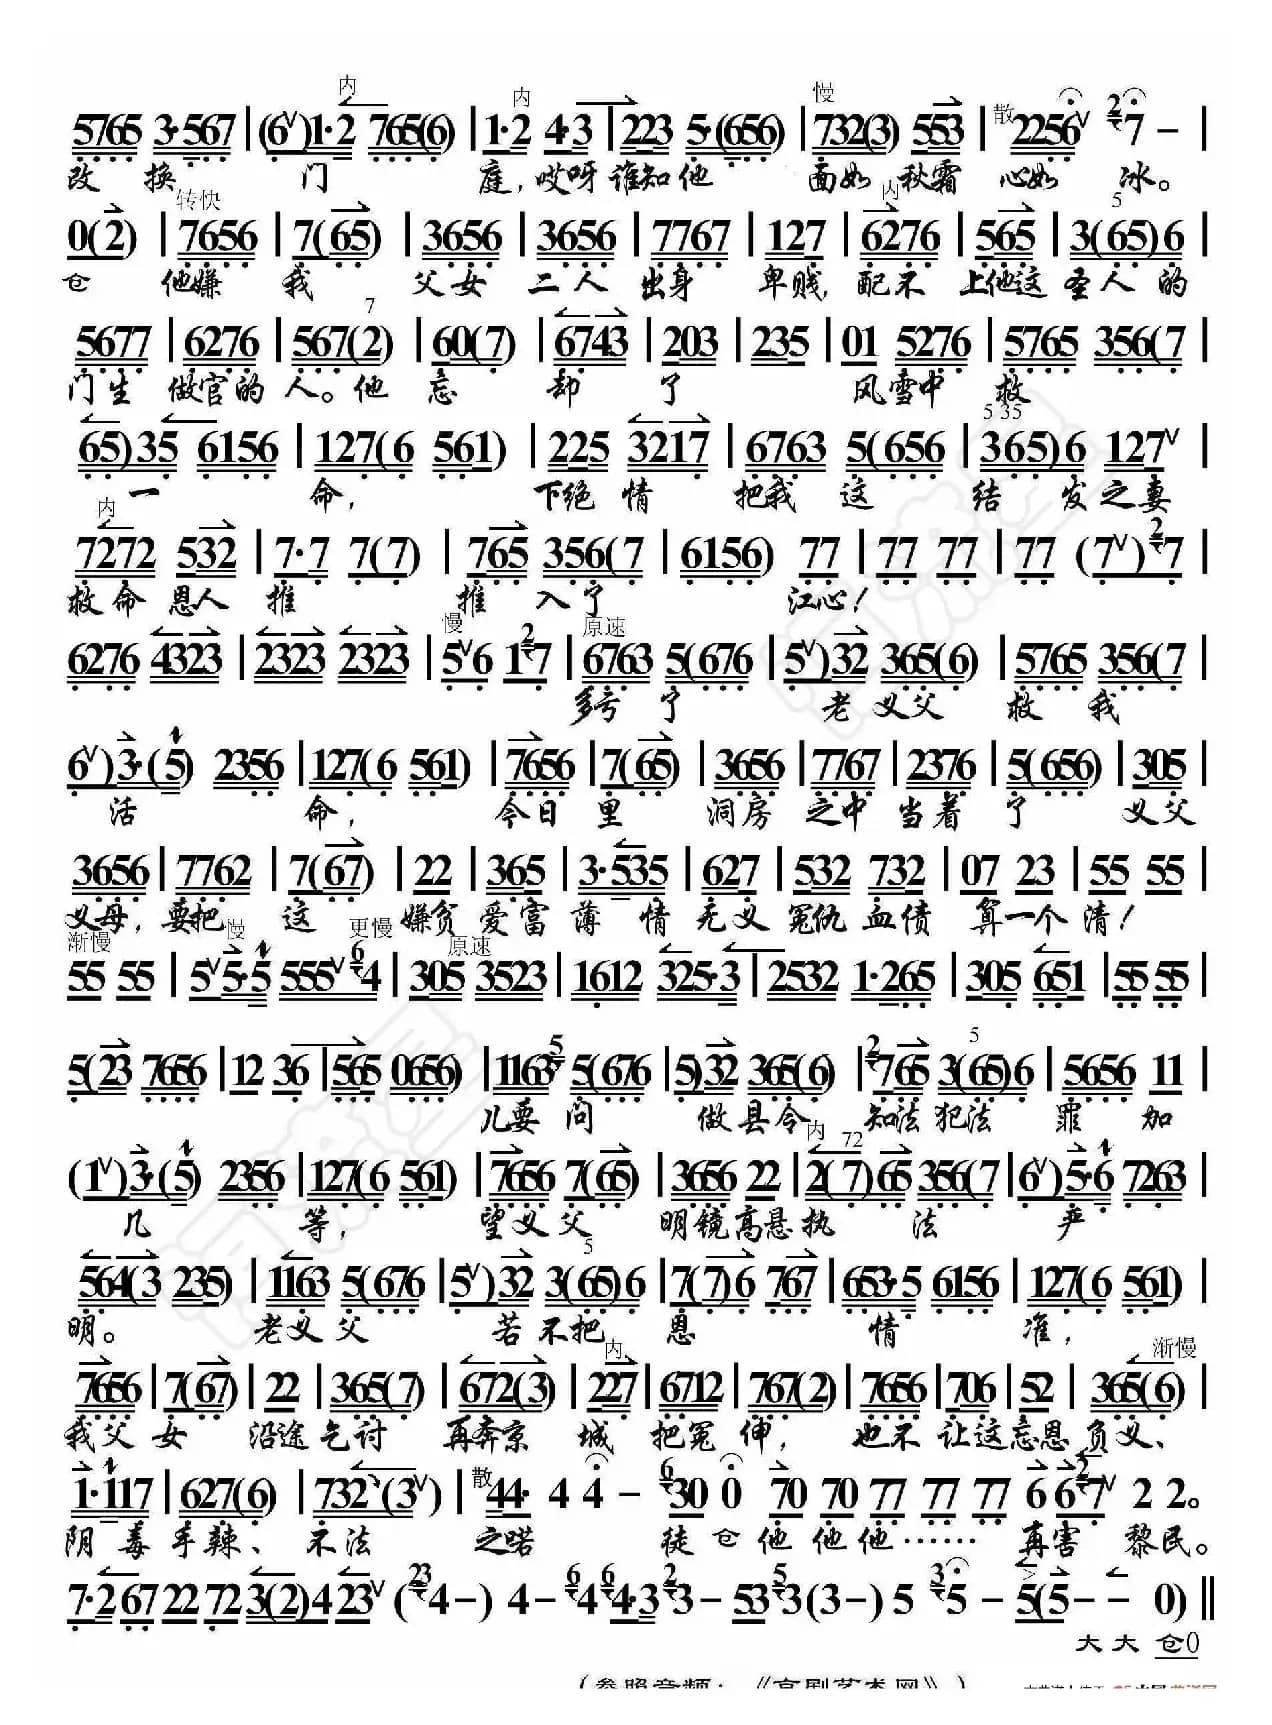 内 内 慢 散
5765 3·567 | (6ⱽ)1·2 765(6) | 1·2 4·3 | 223 5·(656) | 732(3) 553 | 2256ⱽ 2 7 – |
改 换 门 庭, 哎呀 谁知 他 面如 秋霜 心如 冰。
转快 内 5
0(2) | 7656 | 7(65) | 3656 | 3656 | 7767 | 127 | 6276 | 565 | 3(65)6 |
仓 他嫌 我 父女 二人 出身 卑贱, 配不 上他这 圣人的
7
5677 | 6276 | 567(2) | 60(7) | 6743 | 203 | 235 | 01 5276 | 5765 356(7 |
门生 做官的 人。他 忘 却 了 风雪中 救
5 35
65)35 6156 | 127(6 561) | 225 3217 | 6763 5(656 | 365)6 127ⱽ |
一 命, 下绝 情 把我 这 结 发之妻
内 2
7272 532 | 7·7 7(7) | 765 356(7 | 6156) 77 | 77 77 | 77 (7ⱽ) 7 |
救命恩人 推 推 入了 江心!
慢 2 原速
6276 4323 | 2323 2323 | 5ⱽ6 1 7 | 6763 5(676 | 5ⱽ)32 365(6) | 5765 356(7 |
多亏 了 老 义父 救 我
6ⱽ)3·(5) 2356 | 127(6 561) | 7656 | 7(65) | 3656 | 7767 | 2376 | 5(656) | 305 |
活 命, 今日 里 洞房 之中 当着 了 义父
3656 | 7762 | 7(67) | 22 | 365 | 3·535 | 627 | 532 732 | 07 23 | 55 55 |
义母, 要把 这 嫌贫 爱富 薄 情 无义 冤仇 血债 算一个 清!
渐慢 慢 更慢 6 原速
55 55 | 5ⱽ5·5 555ⱽ 4 | 305 3523 | 1612 325·3 | 2532 1·265 | 305 651 | 55 55 |
5 2 5
5(23 7656 | 12 36 | 565 0656) | 1163 5(676 | 5)32 365(6) | 765 3(65)6 | 5656 11 |
儿要 问 做县令 知法 犯法 罪 加
内 72
(1ⱽ)3·(5) 2356 | 127(6 561) | 7656 7(65) | 3656 22 | 2(7)65 356(7 | 6ⱽ)5·6 7263 |
几 等, 望义 父 明镜 高悬 执 法 严
5
564(3 235) | 1163 5(676 | 5ⱽ)32 3(65)6 | 7(7)6 767 | 653·5 6156 | 127(6 561) |
明。 老义 父 若 不把 恩 情 准,
内 渐慢
7656 | 7(67) | 22 | 365(7) | 672(3) | 227 | 6712 | 767(2) | 7656 | 706 | 52 | 365(6) |
我父 女 沿途 乞讨 再奔京 城 把冤 伸, 也不 让这 忘恩 负义、
散 6 2
1·117 | 627(6) | 732(3ⱽ) | 44· 4 4 – | 30 0 70 70 77 77 77 6 67ⱽ 2 2。
阴 毒 手 辣、 不法 之啫 徒 仓 他 他 他…… 再害 黎民。
23 6 6 3 5 3
7·267 22 72 3(2)4 23ⱽ (4–) 4– 4·3 3– 53 3(3–) 5 5– 5(5– – 0) ‖
大 大 仓0
(参照音频:《京剧艺术网》)